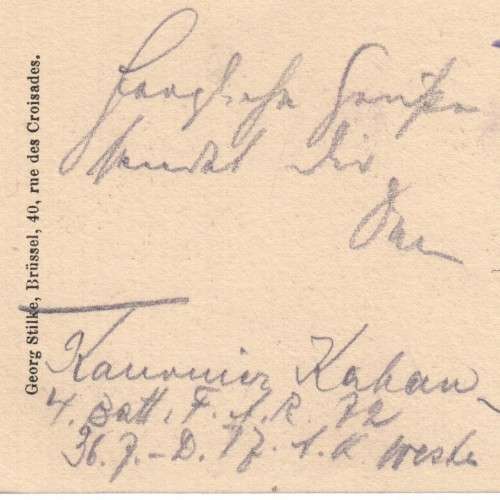 Herzliche Grüße
sendet Dir
Kanonier Kahan
4. Batt. F. A. R. 72
36. J.-D. 17. A. K. Westen
Georg Stilke, Brüssel, 40, rue des Croisades.